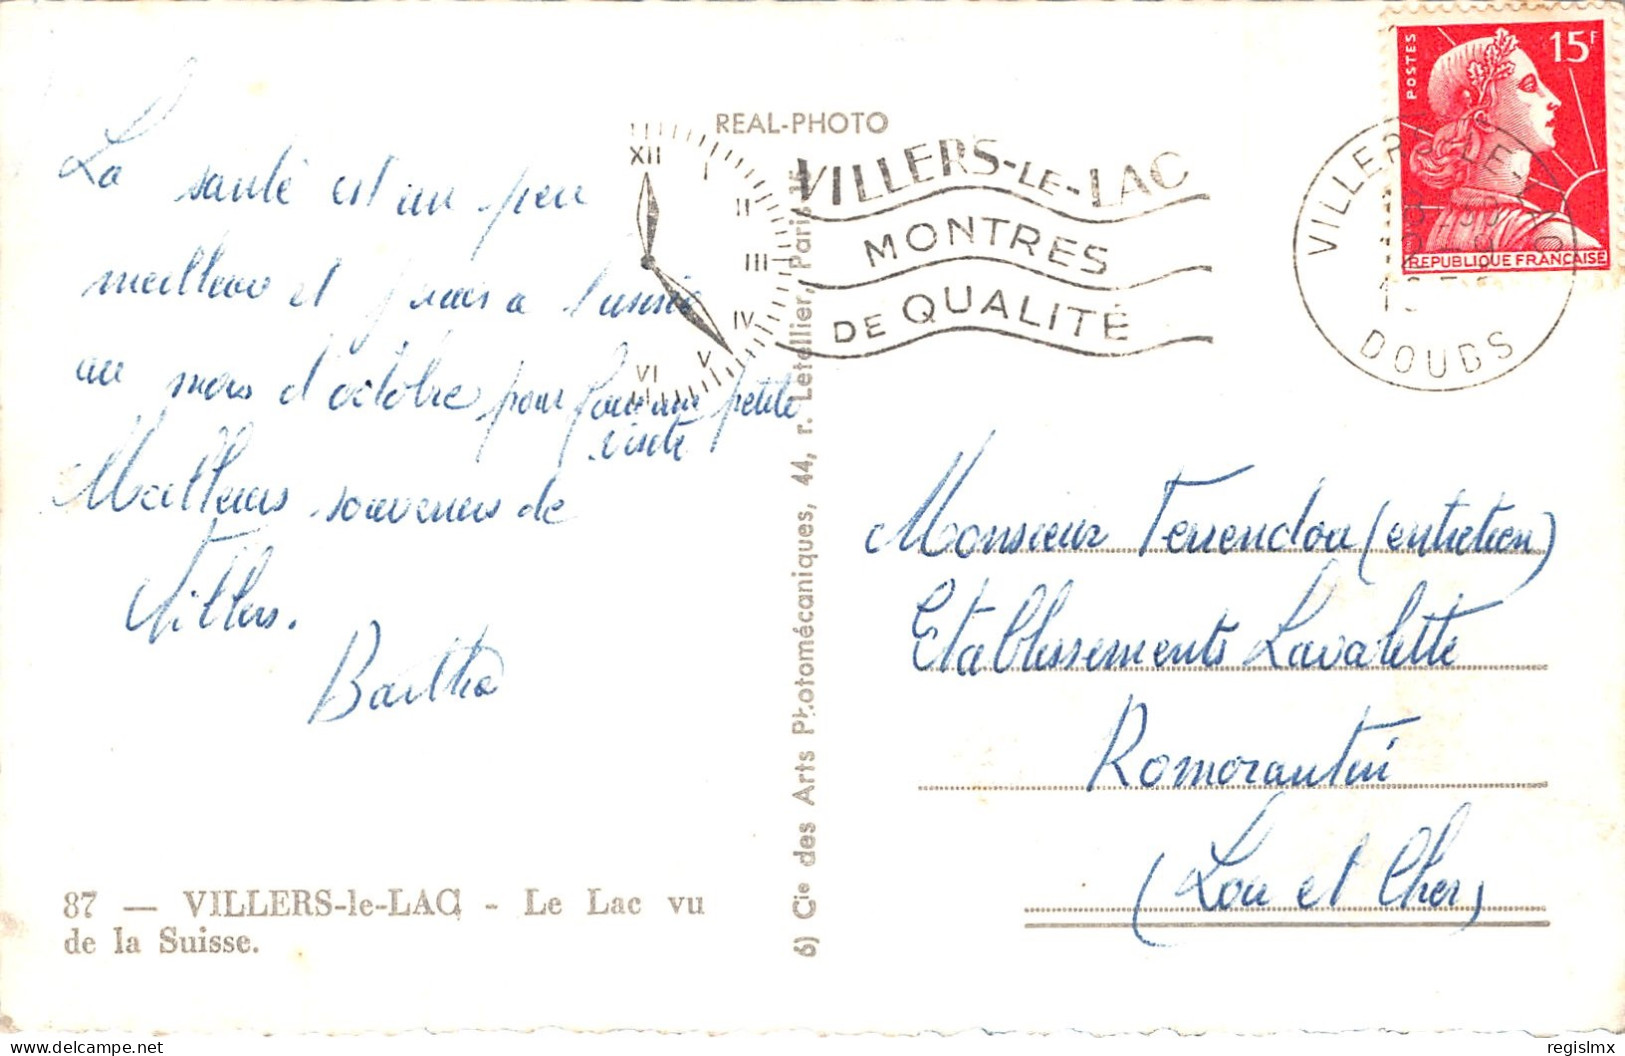 La santé est un peu
meilleur et j'irais a l'usine
au mois d'octobre pour faire une petite
visite
Meilleurs souvenirs de
Villers.
Bartho
87 — VILLERS-le-LAC - Le Lac vu
de la Suisse.
REAL-PHOTO
XII
I
II
III
IV
V
VI
VILLERS-LE-LAC
MONTRES
DE QUALITÉ
6) Cie des Arts Photomécaniques, 44, r. Letellier, Paris-15
POSTES
15F
REPUBLIQUE FRANÇAISE
VILLERS-LE-LAC
DOUBS
Monsieur (entretien)
Etablissements Lavalette
Romorantin
(Loir et Cher)
delcampe.net
regislmx